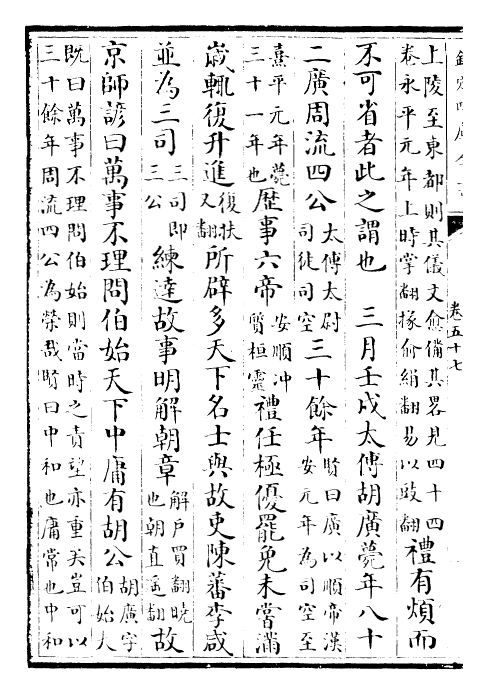 卷五十七
上陵至東都則其儀文愈備其畧見四十四
卷永平元年上時掌翻掾俞絹翻易以豉翻禮有煩而
不可省者此之謂也　三月壬戌太傅胡廣薨年八十
二廣周流四公太傅太尉司徒司空三十餘年賢曰廣以順帝漢安元年為司空至
熹平元年薨三十一年也歴事六帝安順冲質桓靈禮任極優罷免未嘗滿
歲輒復升進復扶又翻所辟多天下名士與故吏陳蕃李咸
並為三司三司即三公練達故事明解朝章解戶買翻曉也朝直遥翻故
京師諺曰萬事不理問伯始天下中庸有胡公胡廣字伯始夫
既曰萬事不理問伯始則當時之責望亦重矣豈可以
三十餘年周流四公為榮哉賢曰中和也庸常也中和